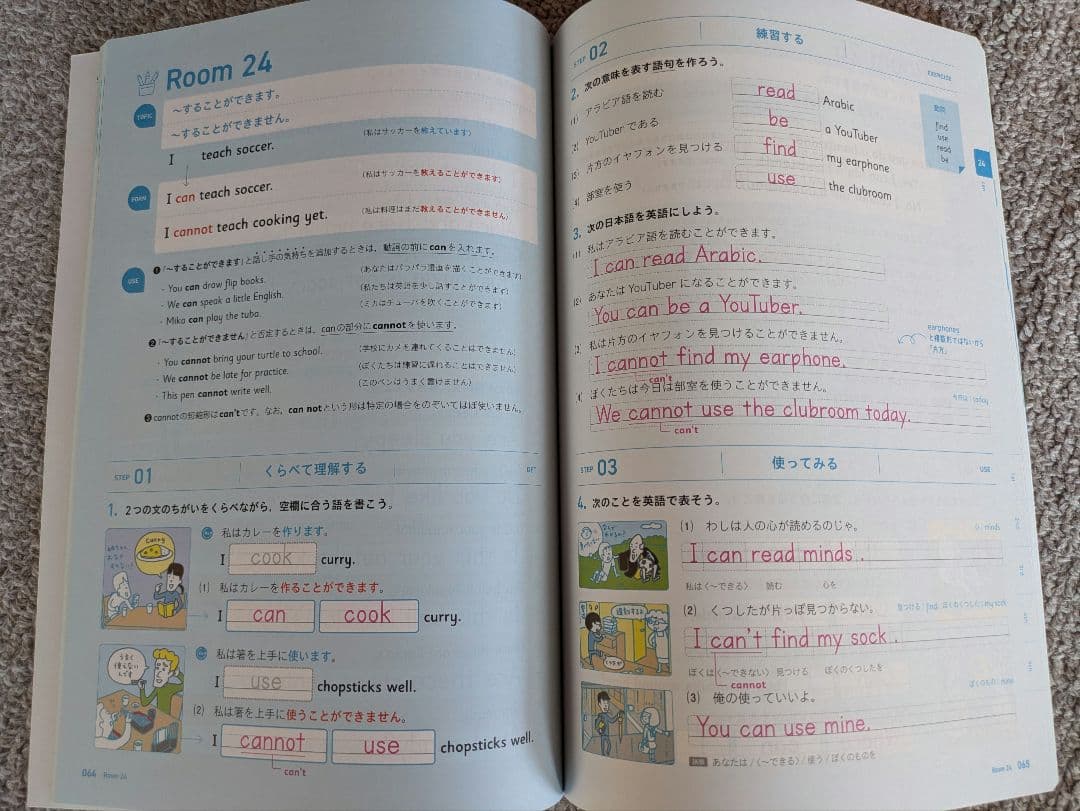 Room 24
TOPIC
～することができます。
～することができません。
I teach soccer.
(私はサッカーを教えています)
FORM
I can teach soccer.
(私はサッカーを教えることができます)
I cannot teach cooking yet.
(私は料理はまだ教えることができません)
USE
❶「～することができます」と話し手の気持ちを追加するときは、動詞の前にcanを入れます。
- You can draw flip books.
(あなたはパラパラ漫画を描くことができます)
- We can speak a little English.
(私たちは英語を少し話すことができます)
- Mika can play the tuba.
(ミカはチューバを吹くことができます)
❷「～することができません」と否定するときは、canの部分にcannotを使います。
- You cannot bring your turtle to school.
(学校にカメを連れてくることはできません)
- We cannot be late for practice.
(ぼくたちは練習に遅れることはできません)
- This pen cannot write well.
(このペンはうまく書けません)
❸cannotの短縮形はcan'tです。なお、can notという形は特定の場合をのぞいてほぼ使いません。
STEP 01
くらべて理解する
1. 2つの文のちがいをくらべながら、空欄に合う語を書こう。
curry
私はカレーを作ります。
I cook curry.
(1) 私はカレーを作ることができます。
I can cook curry.
うまく
使えない
んです
私は箸を上手に使います。
I use chopsticks well.
(2) 私は箸を上手に使うことができません。
I cannot use chopsticks well.
can't
064 Room 24
STEP 02
練習する
EXERCISE
2. 次の意味を表す語句を作ろう。
(1) アラビア語を読む
read Arabic
(2) YouTuberである
be a YouTuber
(3) 片方のイヤフォンを見つける
find my earphone
(4) 部室を使う
use the clubroom
動詞
find
use
read
be
24
3. 次の日本語を英語にしよう。
(1) 私はアラビア語を読むことができます。
I can read Arabic.
(2) あなたはYouTuberになることができます。
You can be a YouTuber.
(3) 私は片方のイヤフォンを見つけることができません。
I cannot find my earphone.
can't
earphones
と複数形ではないから
「片方」
(4) ぼくたちは今日は部室を使うことができません。
今日は：today
We cannot use the clubroom today.
can't
STEP 03
使ってみる
USE
4. 次のことを英語で表そう。
(1) わしは人の心が読めるのじゃ。
心：minds
I can read minds .
私は〈～できる〉 読む 心を
(2) くつしたが片っぽ見つからない。
見つける：find ぼくのくつした：my sock
I can't find my sock .
ぼくは〈～できない〉 見つける ぼくのくつしたを
cannot
ぼくのもの：mine
(3) 俺の使っていいよ。
You can use mine.
あなたは / 〈～できる〉 / 使う / ぼくのものを
Room 24 065